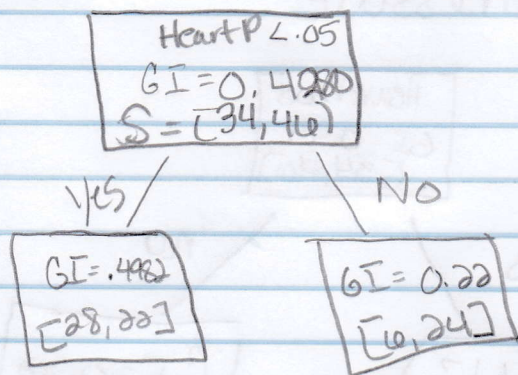 HeartP <.05
GI=0.4980
S = [34,46]
Yes
No
GI=.4982
[28,22]
GI= 0.22
[6,24]